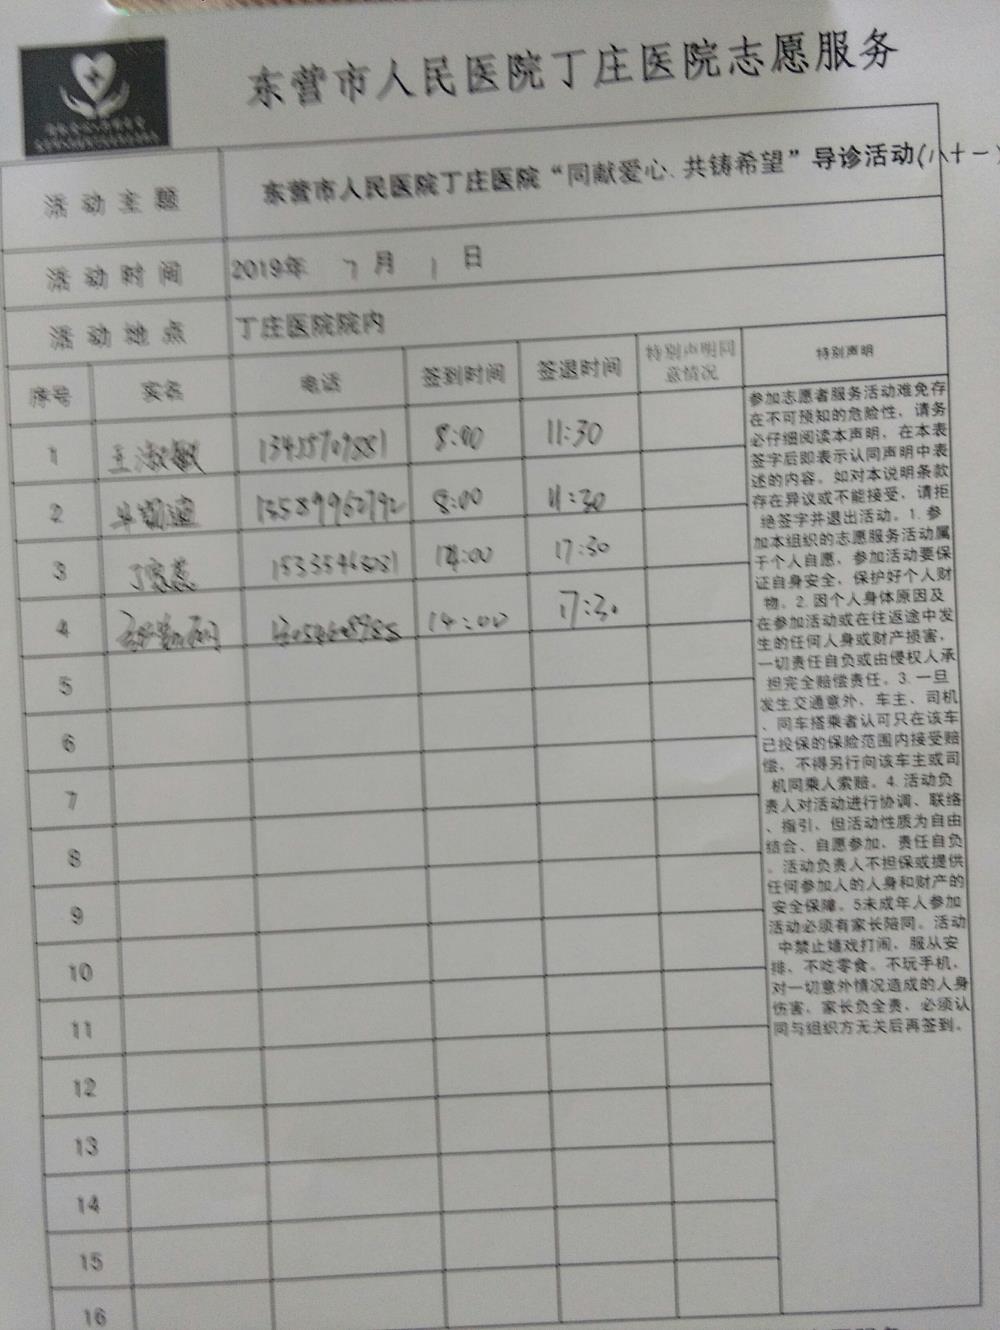 东营市人民医院丁庄医院志愿服务
活动主题 东营市人民医院丁庄医院“同献爱心、共铸希望”导诊活动(八十一)
活动时间 2019年 7月 1 日
活动地点 丁庄医院院内
序号 实名 电话 签到时间 签退时间 特别声明同意情况 特别声明
1 王淑敏 8:00 11:30
2 8:00 11:30
3 14:00 17:30
4 14:00 17:30
5
6
7
8
9
10
11
12
13
14
15
16
参加志愿者服务活动难免存
在不可预知的危险性，请务
必仔细阅读本声明，在本表
签字后即表示认同声明中表
述的内容。如对本说明条款
存在异议或不能接受，请拒
绝签字并退出活动。1.参
加本组织的志愿服务活动属
于个人自愿，参加活动要保
证自身安全，保护好个人财
物。2.因个人身体原因及
在参加活动或在往返途中发
生的任何人身或财产损害，
一切责任自负或由侵权人承
担完全赔偿责任。3.一旦
发生交通意外，车主、司机
、同车搭乘者认可只在该车
已投保的保险范围内接受赔
偿，不得另行向该车主或司
机同乘人索赔。4.活动负
责人对活动进行协调、联络
、指引，但活动性质为自由
结合、自愿参加，责任自负
，活动负责人不担保或提供
任何参加人的人身和财产的
安全保障。5未成年人参加
活动必须有家长陪同。活动
中禁止嬉戏打闹，服从安
排，不吃零食，不玩手机，
对一切意外情况造成的人身
伤害，家长负全责，必须认
同与组织方无关后再签到。